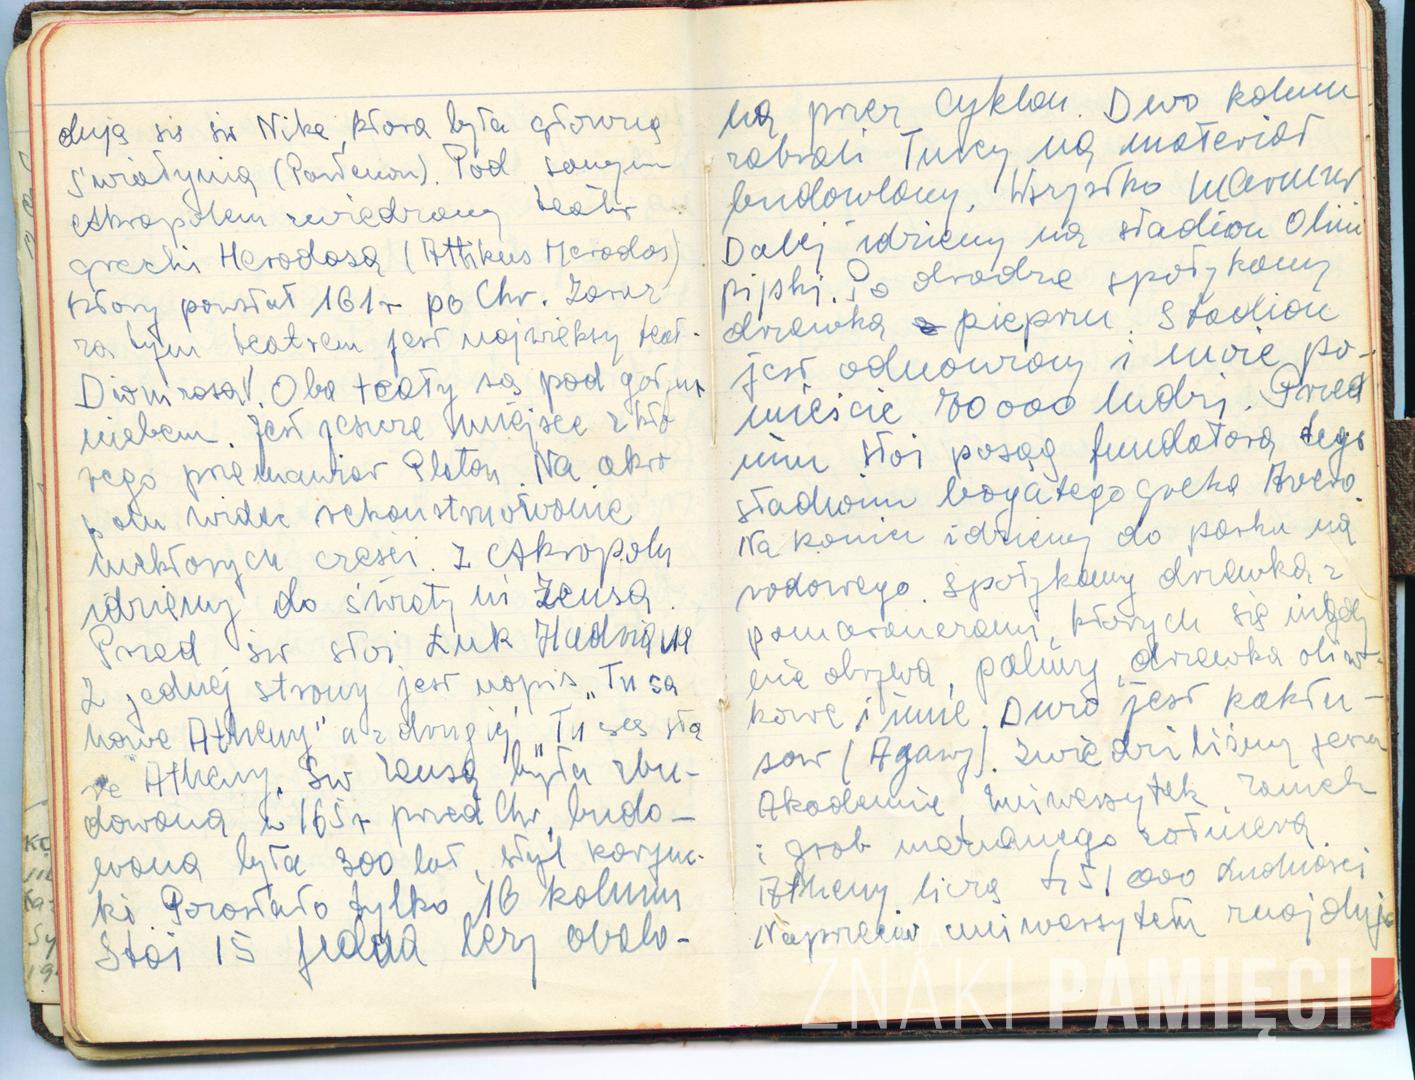 dują się św Nike, która była główną
świątynią (Partenon). Pod samym
Akropolem zwiedzamy teatr
grecki Herodosa (Attikus Herodos)
który powstał 161r po Chr. Zaraz
za tym teatrem jest największy teat.
Dionizosa! Oba teatry są pod gołym
niebem. Jest jeszcze miejsce z któ
rego przemawiał Platon. Na akro
polu widać rekonstruowanie
niektórych części. Z Akropolu
idziemy do świątyni Zeusa.
Przed św stoi Łuk Hadriana
Z jednej strony jest napis „Tu są
nowe Atheny" a z drugiej „Tu są sta
re" Atheny. Św Zeusa była zbu-
dowana w 165r przed Chr, budo-
wana była 300 lat, styl korync-
ki Pozostało tylko 16 kolumn
Stoi 15 jedna leży obalo-
na przez Cyklon. Dwo kolumn
zabrali Turcy na materiał
budowlany. Wszystko marmur
Dalej idziemy na stadion Olim
pijski. Po drodze spotykamy
drzewka pieprzu. Stadion
jest odnowiony i może po-
mieścić 70000 ludzi. Przed
nim stoi posąg fundatora tego
stadionu bogatego greka Avero.
Na koniec idziemy do parku na
rodowego. Spotykamy drzewka z
pomarańczami, których się nigdy
nie obrywa, palmy, drzewka oliw-
kowe i inne. Dużo jest kaktu-
sów (Agawy). Zwiedziliśmy jeszcze
Akademie, Uniwersytek, zamek
i grob nieznanego żołnierza
Atheny liczą 000 Ludności
Naprzeciw uniwersytetu znajdują
ZNAKI PAMIĘCI